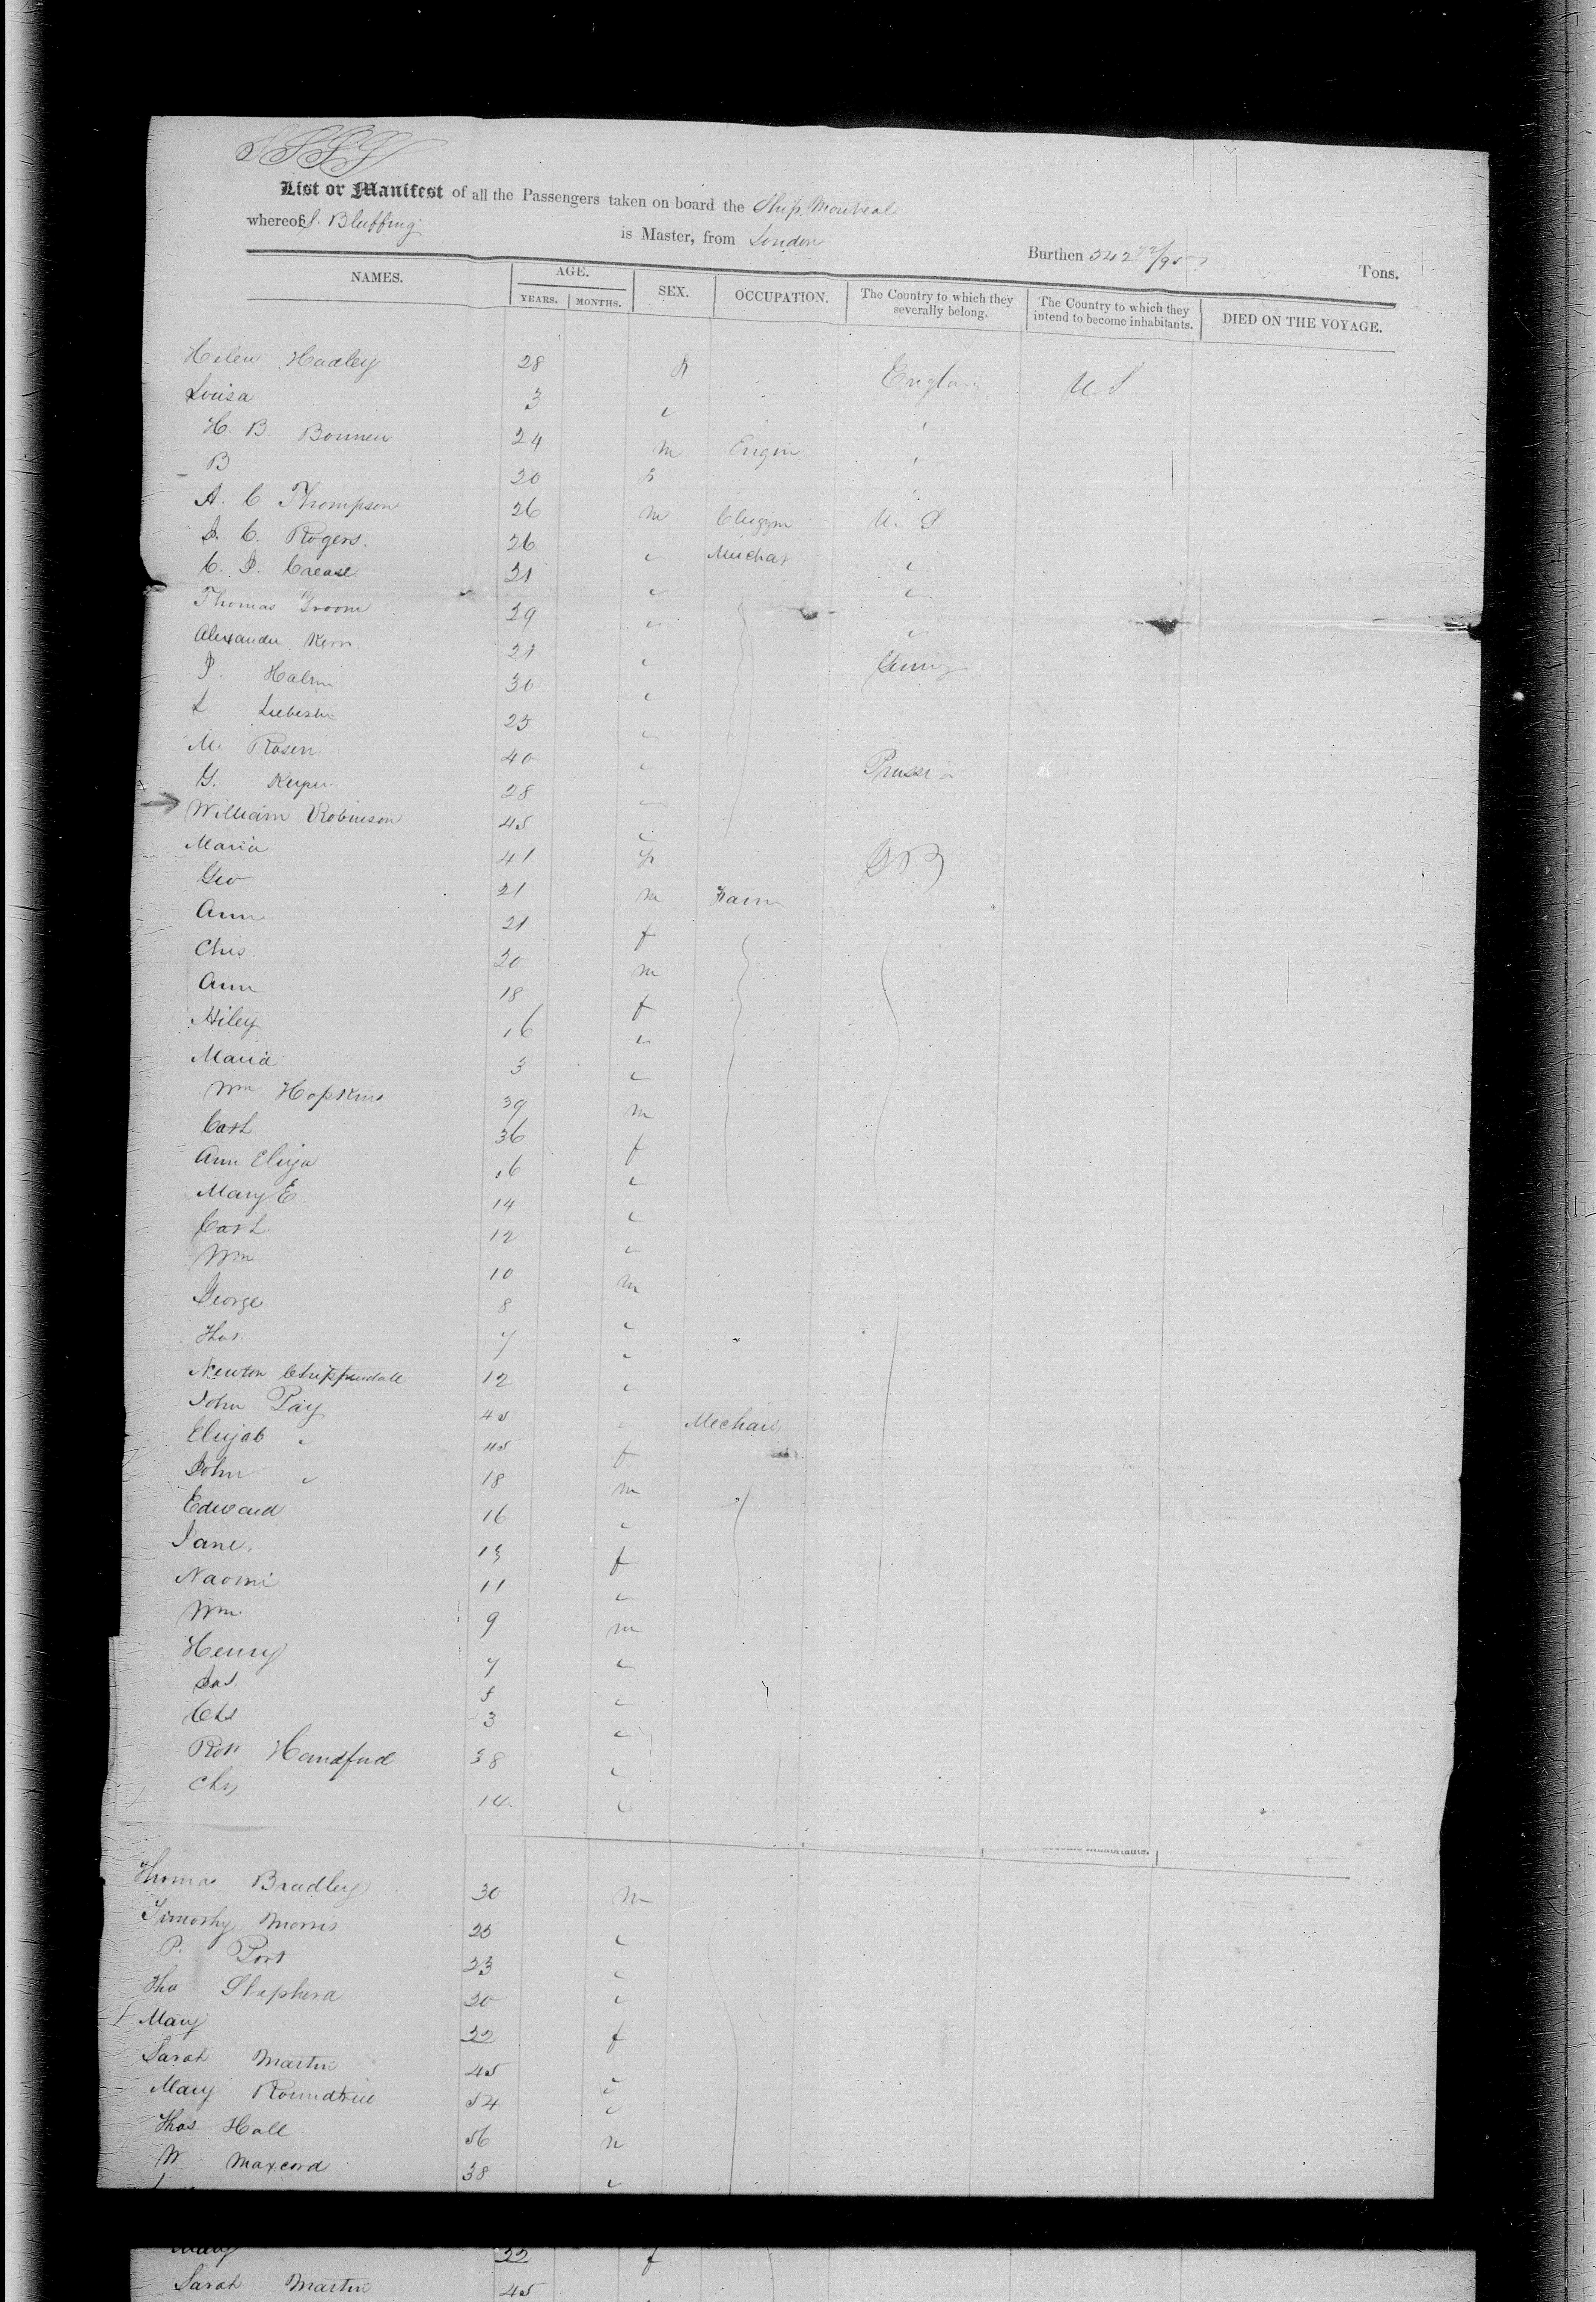 List or Manifest of all the Passengers taken on board the Ship Montreal
whereof S. Bluffing is Master, from London Burthen 542 72/95 Tons.
NAMES. AGE. YEARS. MONTHS. SEX. OCCUPATION. The Country to which they severally belong. The Country to which they intend to become inhabitants. DIED ON THE VOYAGE.
Helen Hadley 28 f England U S
Louisa 3 "
H. B. Bonnen 24 m Engin "
B 20 f "
A. C Thompson 26 m Clergym U. S
J. C. Rogers. 26 " Mechan "
C. J. Crease 21 " "
Thomas Groom 29 " "
Alexander Kern 21 " Germy
J. Halm 30 "
L 25 "
M. Rosen 40 " Prussia
G. Keyser 28 "
William Robinson 45 "
Maria 41 f GB
Geo 21 m Farm
Ann 21 f
Chis. 20 m
Ann 18 f
Hiley 16 "
Maria 3 "
Wm Hopkins 39 m
Cath 36 f
Ann Eliza 16 "
Mary E. 14 "
Cath 12 "
Wm 10 m
George 8 "
Thos. 7 "
Newton Chippendall 12 "
John Pay 45 " Mechan
Elizab " 45 f
John " 18 m
Edward 16 "
Jane. 13 f
Naomi 11 "
Wm 9 m
Henry 7 "
Jas. 5 "
Chs 3 "
Robt Handford 38 "
Chs 14. "
inhabitants.
Thomas Bradley 30 m
Timothy Morris 25 "
P. Port 23 "
Tho Shepherd 30 "
Mary 32 f
Sarah Martin 45 "
Mary Roundtree 54 "
Thos Hall 56 m
W. Maxcord 38 "
Mary 32 f
Sarah Martin 45